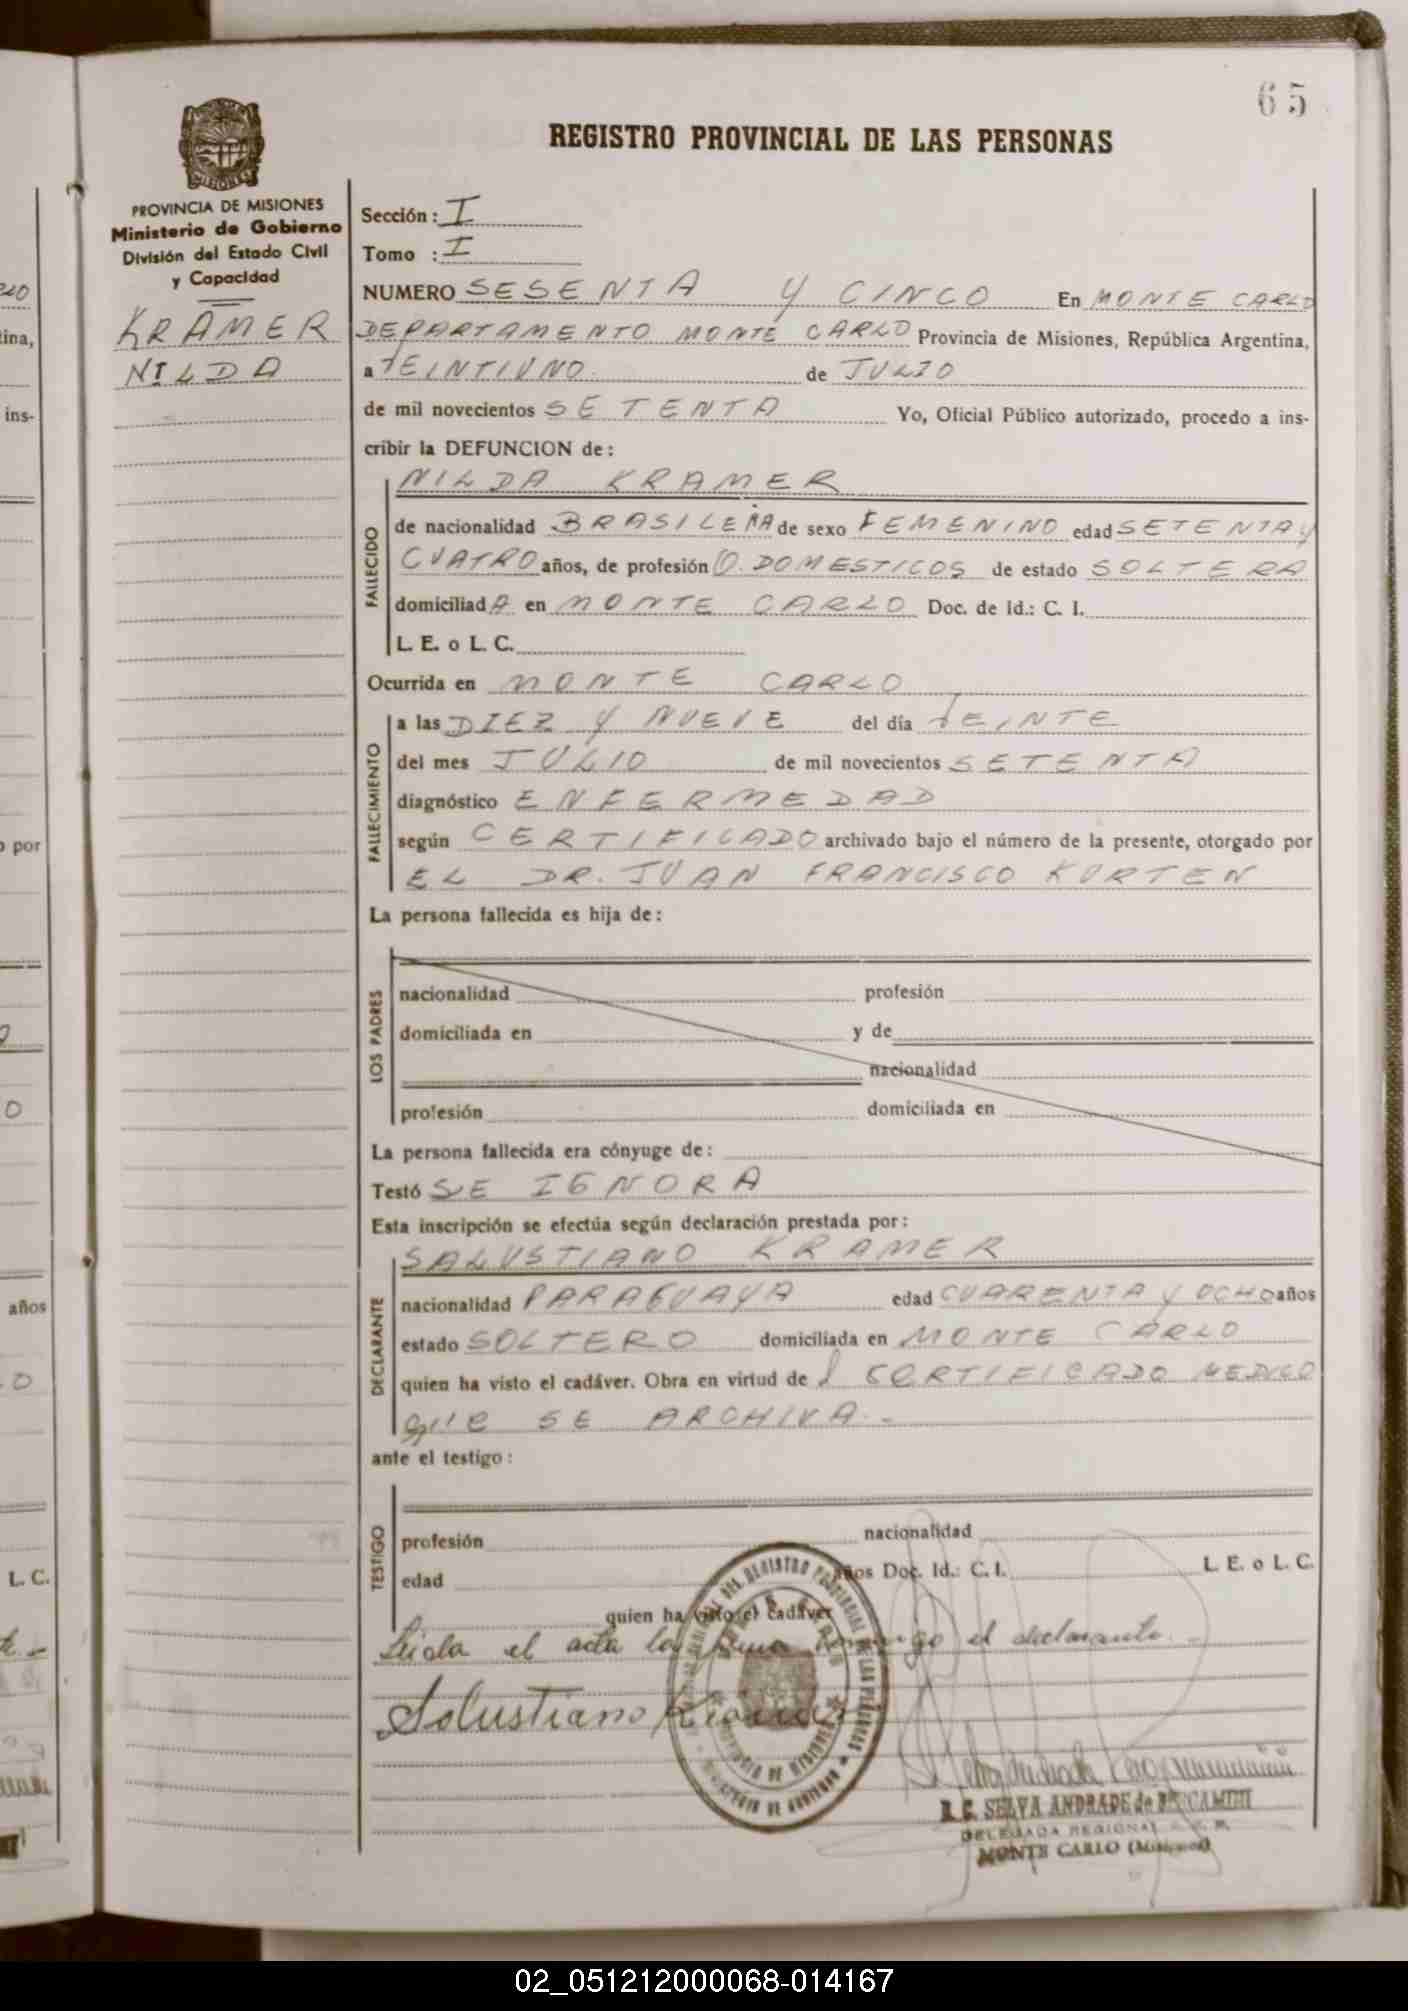 65
REGISTRO PROVINCIAL DE LAS PERSONAS
PROVINCIA DE MISIONES
Ministerio de Gobierno
División del Estado Civil
y Capacidad
KRAMER
NILDA
Sección: I
Tomo : I
NUMERO SESENTA Y CINCO En MONTE CARLO
DEPARTAMENTO MONTE CARLO Provincia de Misiones, República Argentina,
a VEINTIUNO de JULIO
de mil novecientos SETENTA Yo, Oficial Público autorizado, procedo a ins-
cribir la DEFUNCION de:
FALLECIDO
NILDA KRAMER
de nacionalidad BRASILEÑA de sexo FEMENINO edad SETENTA Y
CUATRO años, de profesión Q. DOMESTICOS de estado SOLTERA
domiciliadA en MONTE CARLO Doc. de Id.: C. I.
L. E. o L. C.
Ocurrida en MONTE CARLO
FALLECIMIENTO
a las DIEZ Y NUEVE del día VEINTE
del mes JULIO de mil novecientos SETENTA
diagnóstico ENFERMEDAD
según CERTIFICADO archivado bajo el número de la presente, otorgado por
EL DR. JUAN FRANCISCO KURTEN
La persona fallecida es hija de:
LOS PADRES
nacionalidad profesión
domiciliada en y de
nacionalidad
profesión domiciliada en
La persona fallecida era cónyuge de:
Testó SE IGNORA
Esta inscripción se efectúa según declaración prestada por:
DECLARANTE
SALUSTIANO KRAMER
nacionalidad PARAGUAYA edad CUARENTA Y OCHO años
estado SOLTERO domiciliada en MONTE CARLO
quien ha visto el cadáver. Obra en virtud del CERTIFICADO MEDICO
QUE SE ARCHIVA.-
ante el testigo:
TESTIGO
profesión nacionalidad
edad años Doc. Id.: C. I. L. E. o L. C.
quien ha visto el cadáver
Leida el acta la firma conmigo el declarante.-
Salustiano Kramer
SELVA ANDRADE de
DELEGADA REGIONAL
MONTE CARLO (Misiones)
02_051212000068-014167